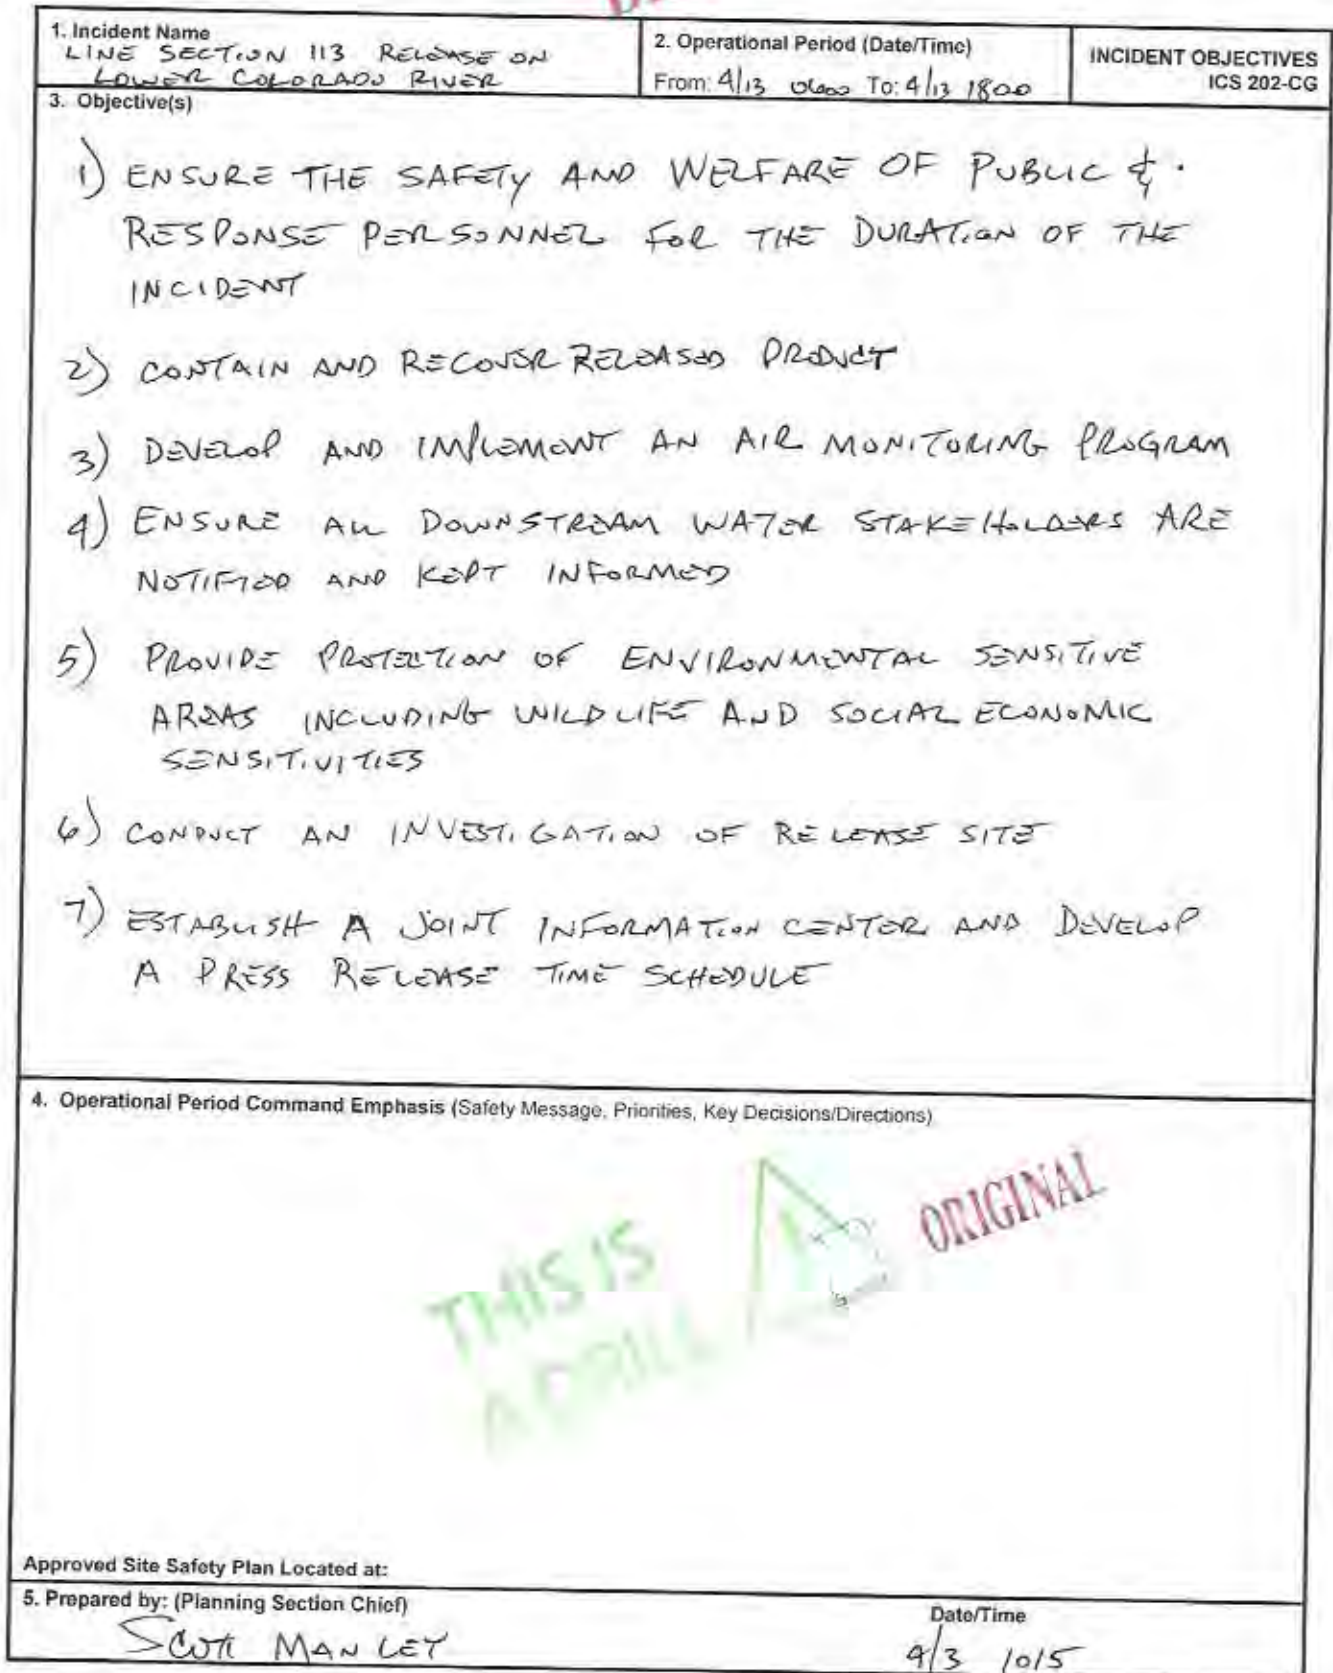 1. Incident Name
LINE SECTION 113 RELEASE ON
LOWER COLORADO RIVER
2. Operational Period (Date/Time)
From: 4/13 0600 To: 4/13 1800
INCIDENT OBJECTIVES
ICS 202-CG
3. Objective(s)
1) ENSURE THE SAFETY AND WELFARE OF PUBLIC &
RESPONSE PERSONNEL FOR THE DURATION OF THE
INCIDENT
2) CONTAIN AND RECOVER RELEASED PRODUCT
3) DEVELOP AND IMPLEMENT AN AIR MONITORING PROGRAM
4) ENSURE ALL DOWNSTREAM WATER STAKEHOLDERS ARE
NOTIFIED AND KEPT INFORMED
5) PROVIDE PROTECTION OF ENVIRONMENTAL SENSITIVE
AREAS INCLUDING WILDLIFE AND SOCIAL ECONOMIC
SENSITIVITIES
6) CONDUCT AN INVESTIGATION OF RELEASE SITE
7) ESTABLISH A JOINT INFORMATION CENTER AND DEVELOP
A PRESS RELEASE TIME SCHEDULE
4. Operational Period Command Emphasis (Safety Message, Priorities, Key Decisions/Directions)
THIS IS
A DRILL
ORIGINAL
Approved Site Safety Plan Located at:
5. Prepared by: (Planning Section Chief)
SCOTT MANLEY
Date/Time
4/3 1015